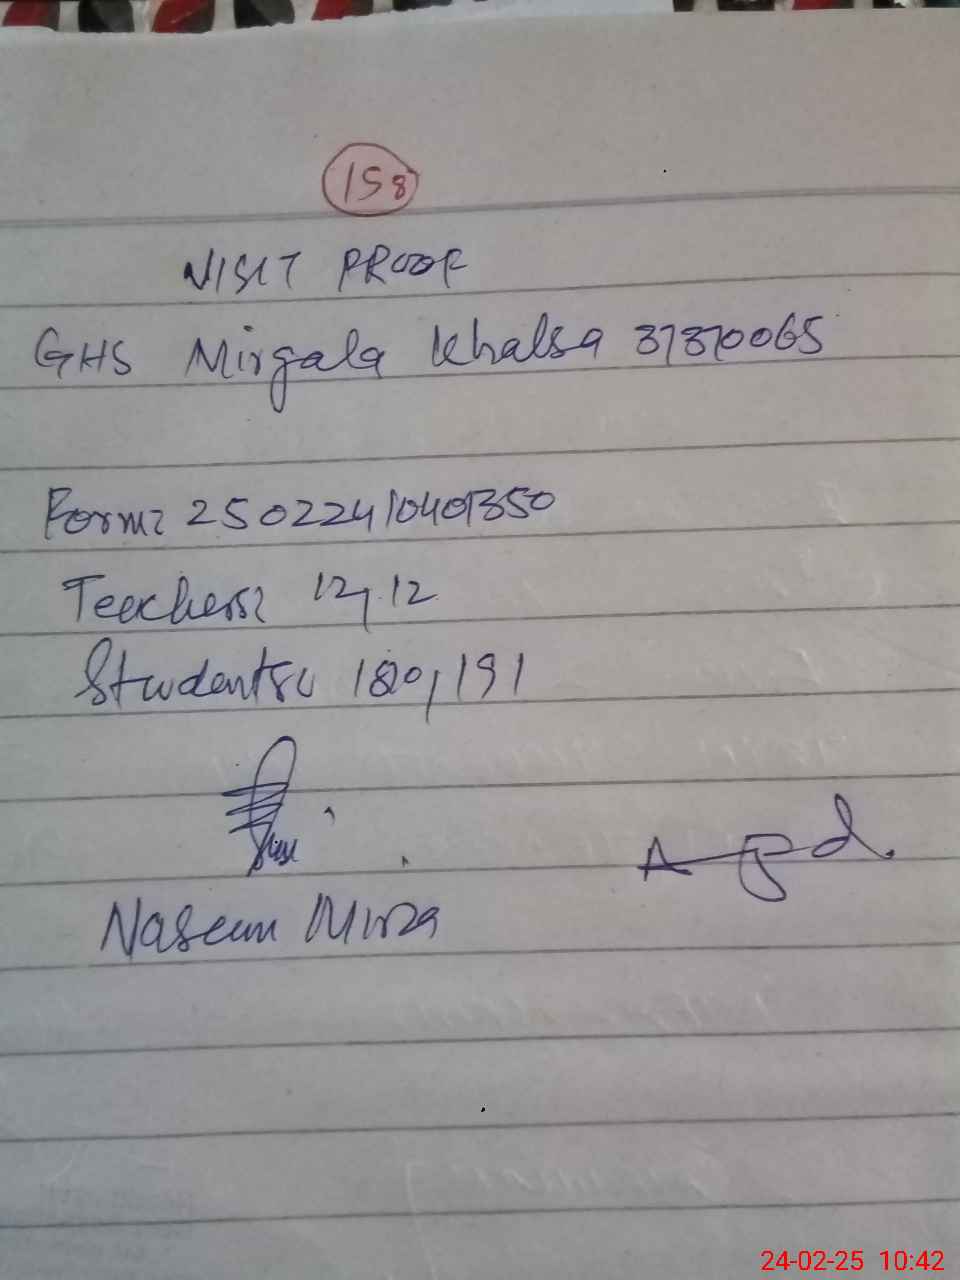 158
VISIT PROOF
GHS Mirgala Khalsa 37370065
Form: 25022410401350
Teachers: 12, 12
Students: 180, 191
Naseem Mirza
24-02-25 10:42